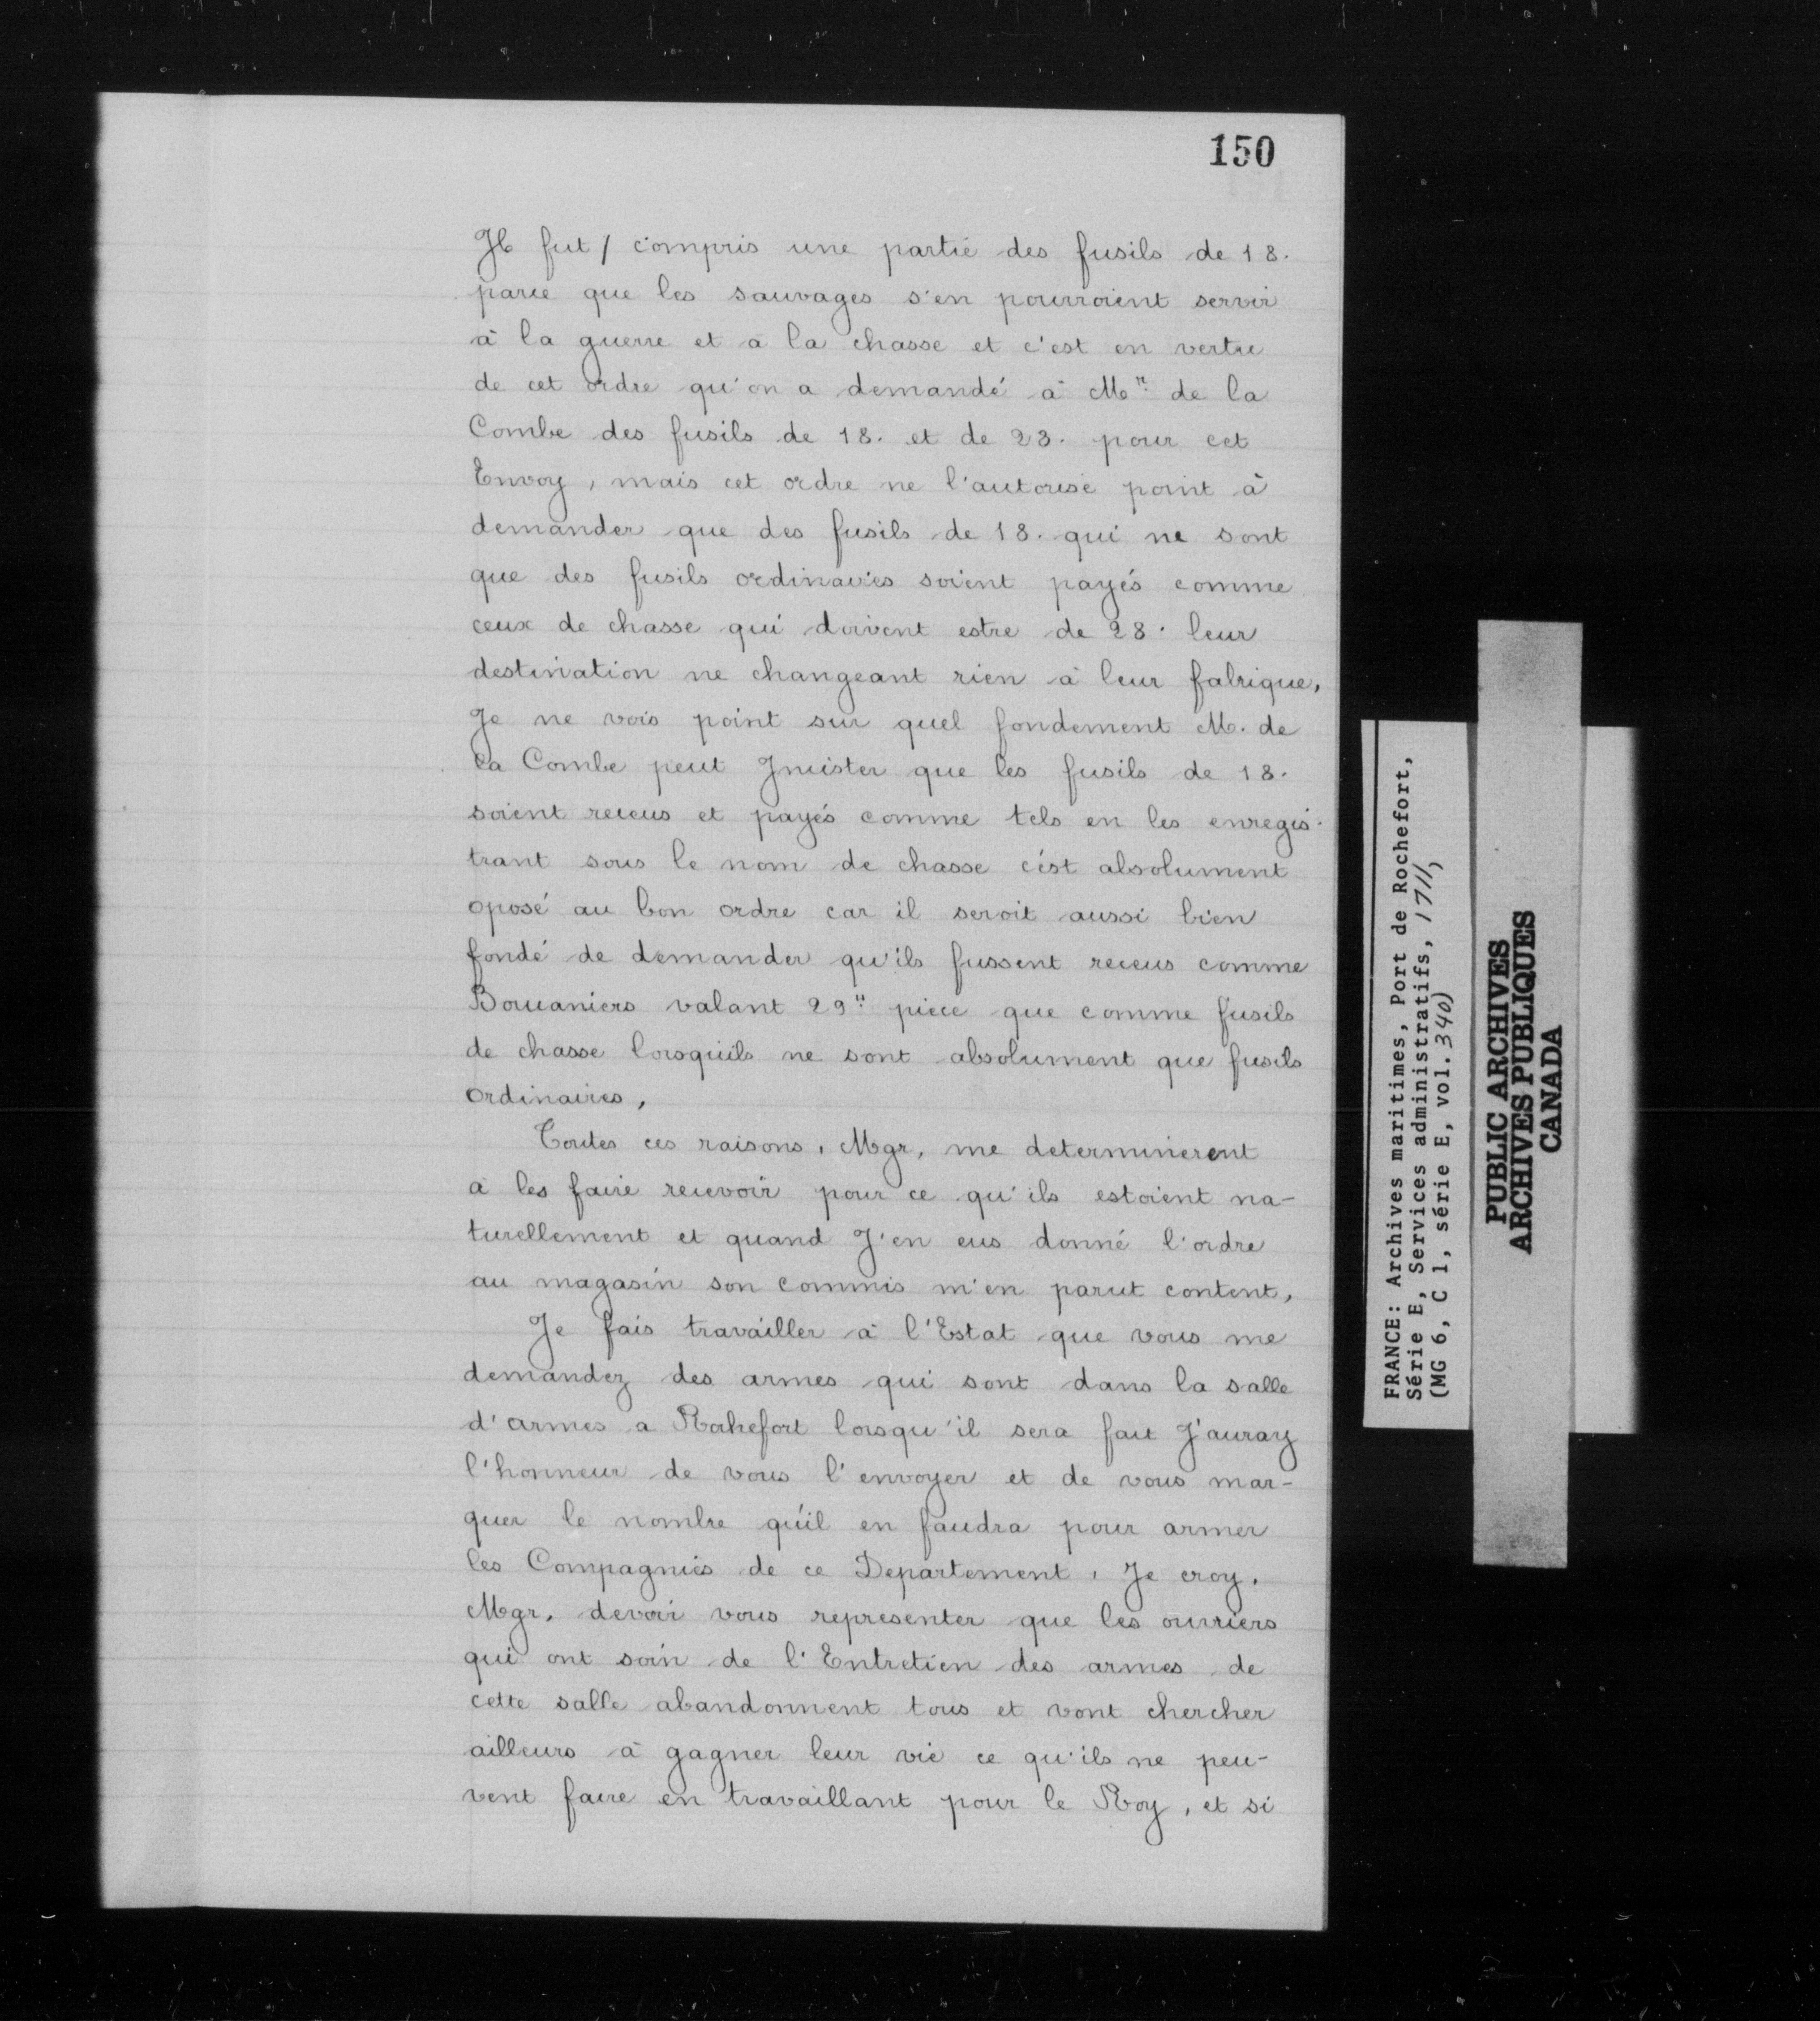 150
Il fut / compris une partie des fusils de 18.
parce que les sauvages s'en pourroient servir
à la guerre et a la chasse et c'est en vertu
de cet ordre qu'on a demandé à Mr. de la
Combe des fusils de 18. et de 23. pour cet
Envoy, mais cet ordre ne l'autorise point à
demander que des fusils de 18. qui ne sont
que des fusils ordinaires soient payés comme
ceux de chasse qui doivent estre de 28. leur
destination ne changeant rien à leur fabrique,
Je ne vois point sur quel fondement M. de
la Combe peut Jnsister que les fusils de 18.
soient receus et payés comme tels en les enregis-
trant sous le nom de chasse c'est absolument
oposé au bon ordre car il seroit aussi bien
fondé de demander qu'ils fussent receus comme
Boucaniers valant 29" piece que comme fusils
de chasse lorsqu'ils ne sont absolument que fusils
ordinaires,
Toutes ces raisons, Mgr, me determinerent
a les faire recevoir pour ce qu'ils estoient na-
turellement et quand J'en eus donné l'ordre
au magasin son commis m'en parut content,
Je fais travailler à l'Estat que vous me
demandez des armes qui sont dans la salle
d'armes a Rochefort lorsqu'il sera fait J'auray
l'honneur de vous l'envoyer et de vous mar-
quer le nombre qu'il en faudra pour armer
les Compagnies de ce Departement, Je croy,
Mgr, devoir vous representer que les ouvriers
qui ont soin de l'Entretien des armes de
cette salle abandonnent tous et vont chercher
ailleurs à gagner leur vie ce qu'ils ne peu-
vent faire en travaillant pour le Roy, et si
FRANCE: Archives maritimes, Port de Rochefort,
Série E, Services administratifs, 1711,
(MG 6, C 1, série E, vol. 340)
PUBLIC ARCHIVES
ARCHIVES PUBLIQUES
CANADA